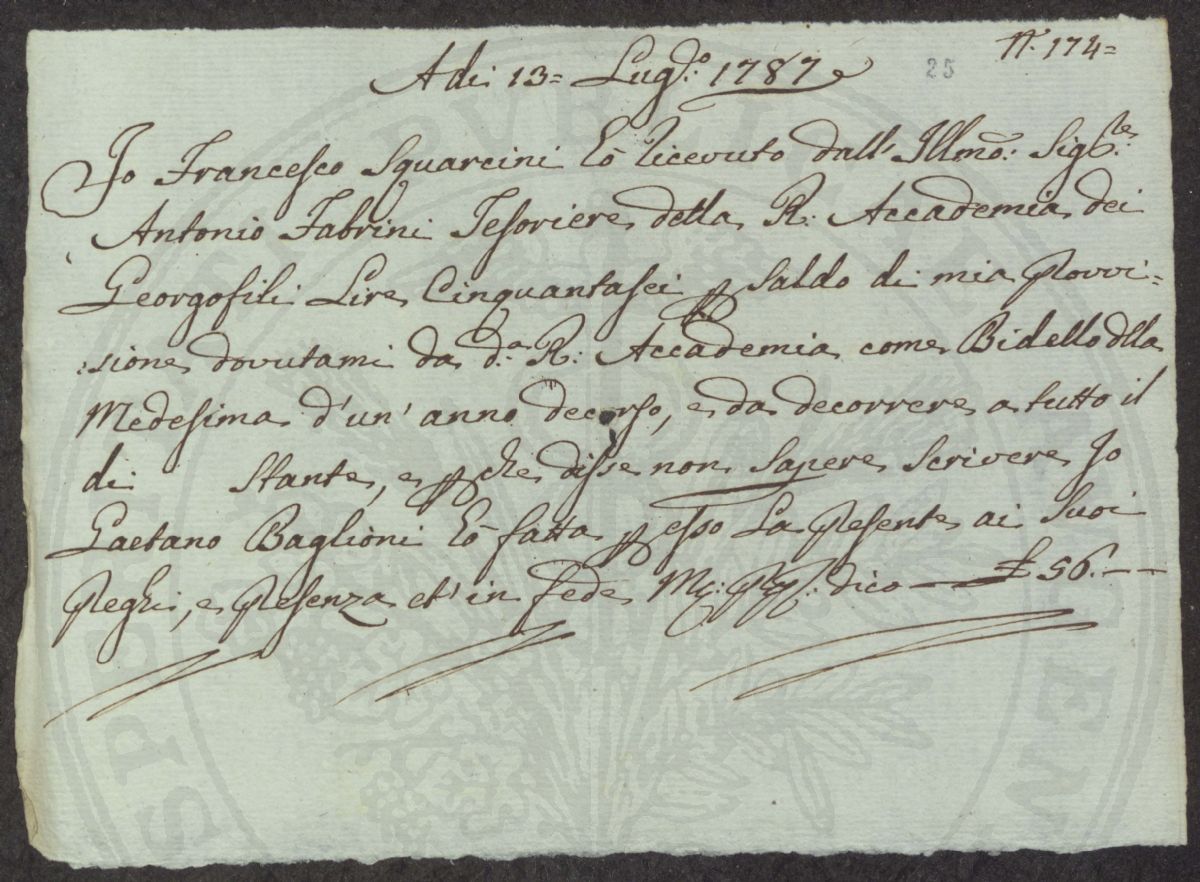 N.° 174=
25
Adi 13= Lug.° 1787
Io Francesco Squarcini hò ricevuto dall' Illmo: Sig.re
Antonio Fabrini Tesoriere della R: Accademia dei
Georgofili Lire Cinquantasei p saldo di mia Provvi=
=sione dovutami da d.a R: Accademia come Bidello dlla
Medesima d'un' anno decorso, e da decorrere a tutto il
di stante, e pche disse non sapere scrivere Io
Gaetano Baglioni hò fatta p esso La Presente ai Suoi
Preghi, e Presenza et' in fede dico £ 56.